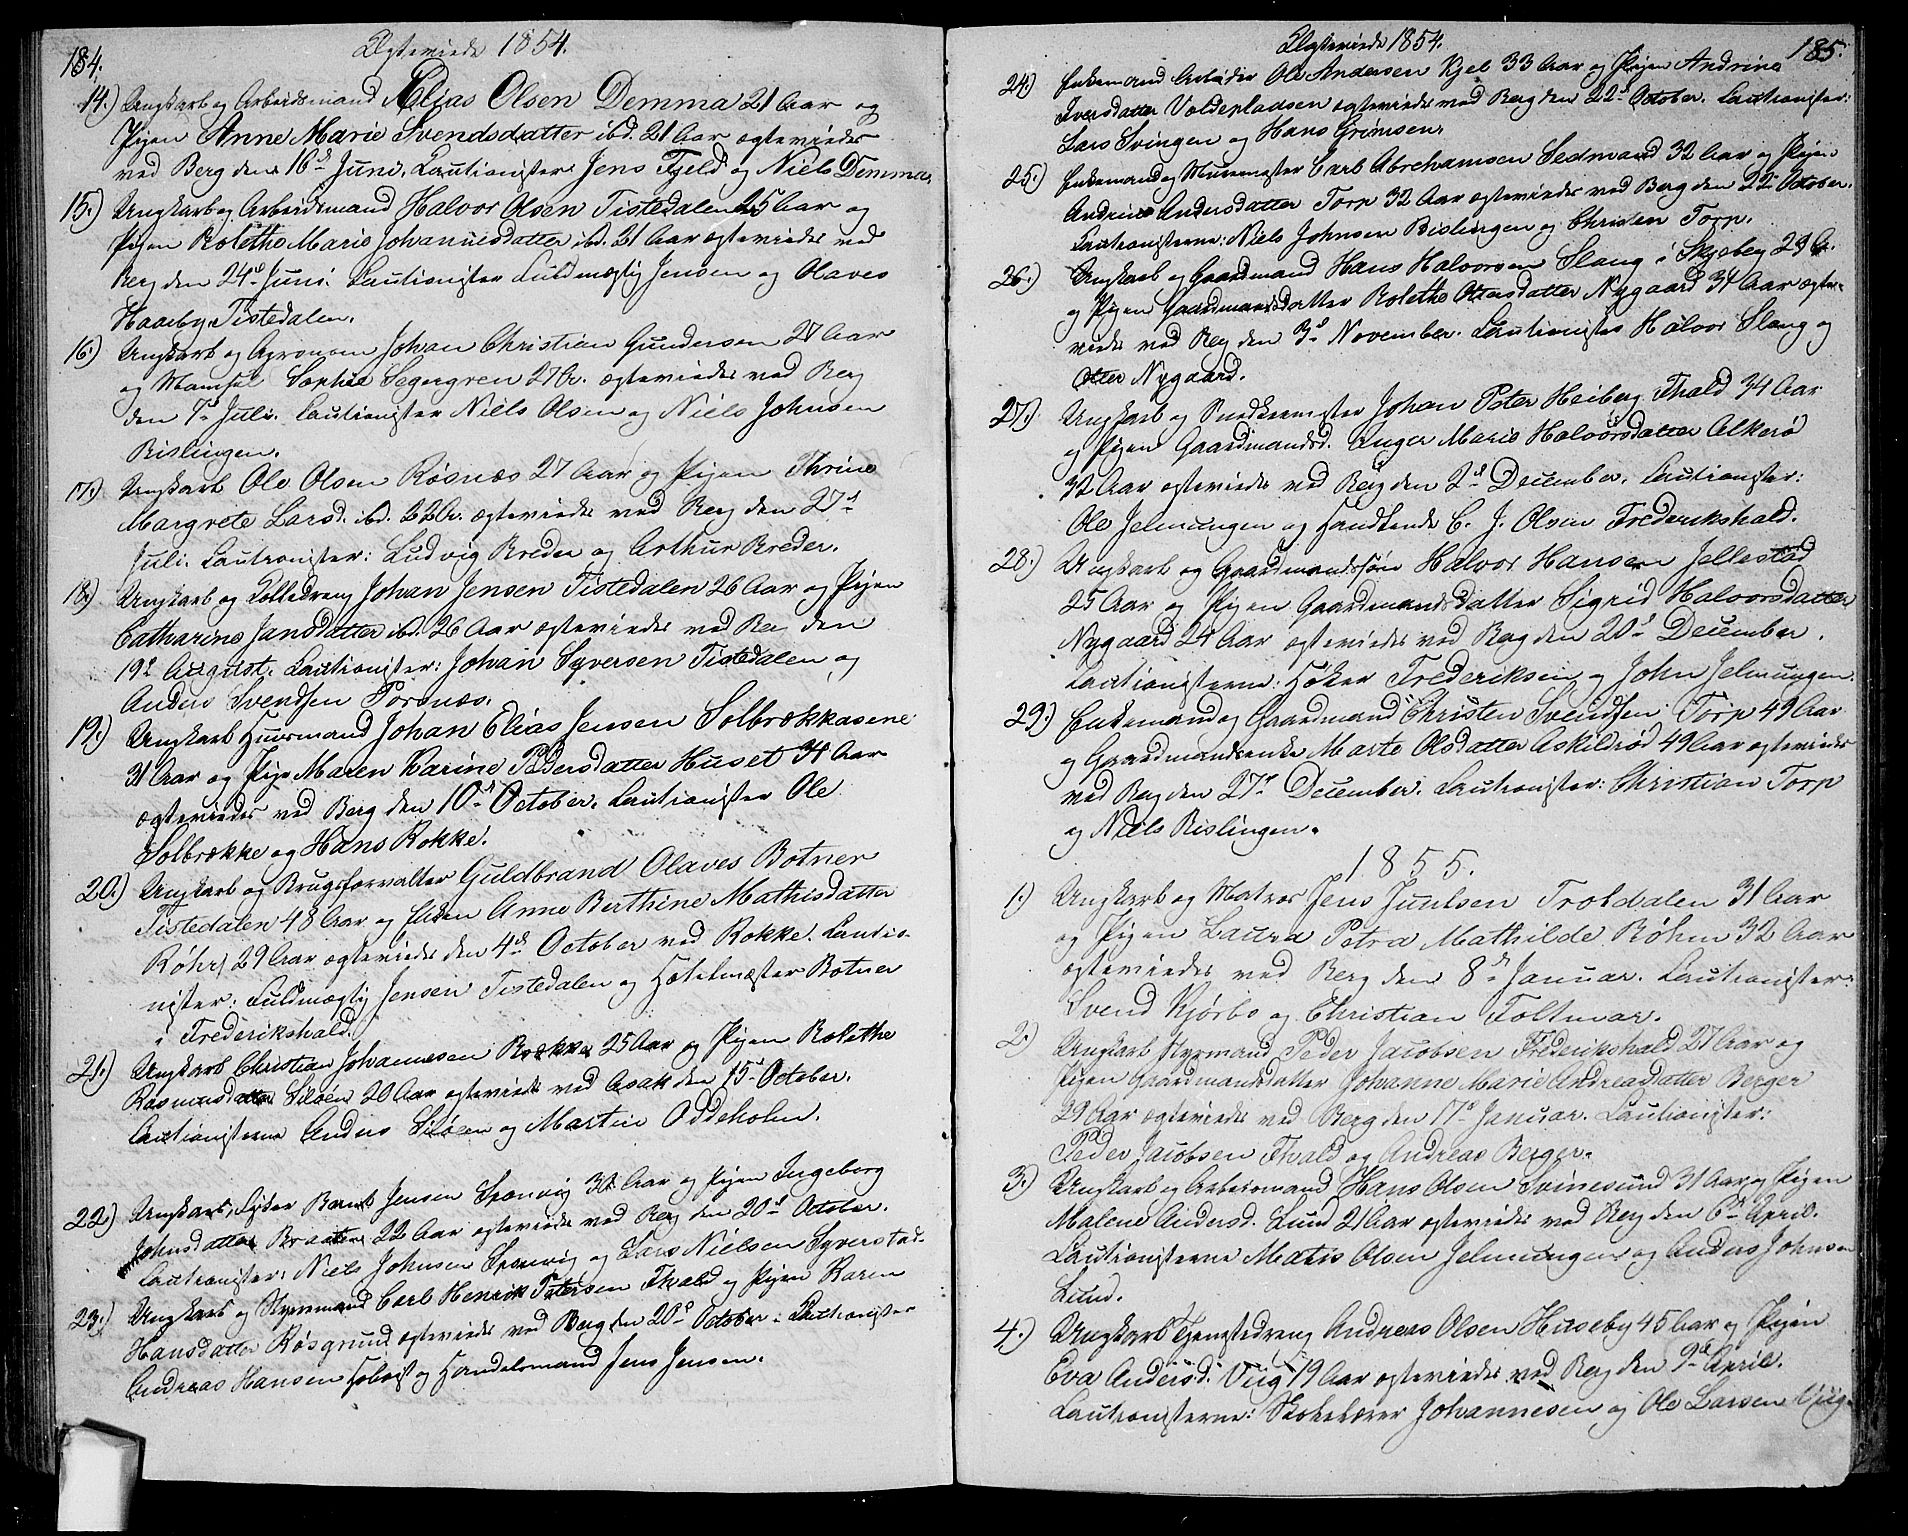 184.
Ægteviede 1854.
14.) Ungkarl og Arbeidsmand Elias Olsen Demma 21 Aar og
Pigen Anne Marie Svendsdatter ibd. 21 Aar ægteviedes
ved Berg den 16d Juni. Cautionister Jens Fjeld og Niels Demma.
15.) Ungkarl og Arbeidsmand Halvor Olsen Tistedalen 25 Aar og
Pigen Rolethe Marie Johannesdatter ibd. 21 Aar ægteviedes ved
Berg den 24d Juni. Cautionister Fuldmægtig Jensen og Olaves
Haaeby, Tistedalen.
16.) Ungkarl og Agronom Johan Christian Gundersen 27 Aar
og Mamsel Sophie Segergren 27 Ar. ægteviedes ved Berg
den 7d Juli. Cautionister Niels Olsen og Niels Johnsen
Bislingen.
17.) Ungkarl Ole Olsen Røsnæs 27 Aar og Pigen Thrine
Margrete Larsd. ibd. 22 Ar. ægteviedes ved Berg den 27d
Juli. Cautionister: Ludvig Breder og Arthur Breder.
18.) Ungkarl og Johan Jensen Tistedalen 26 Aar og Pigen
Catharine Jansdatter ibd. 26 Aar ægteviedes ved Berg den
19d August. Cautionister: Johan Syversen Tistedalen og
Anders Svendsen Porsnæs.
19.) Ungkarl Huusmand Johan Elias Jensen Solbrækkasene
31 Aar og Pige Maren Karine Pedersdatter Huset 34 Aar
ægteviedes ved Berg den 10d October. Cautionister Ole
Solbrække og Hans Rokke.
20.) Ungkarl og Brugsforvalter Guldbrand Olaves Botner
Tistedalen 48 Aar og Enken Anne Berthine Mathisdatter
Røhr 29 Aar ægteviedes den 4d October ved Rokke. Cautio-
nister: Fuldmægtig Jensen Tistedalen og Botner
i Frederikshald.
21.) Ungkarl Christian Johannesen Brække 25 Aar og Pigen Rolethe
Rasmusdatter Siløen 20 Aar ægteviede ved Asak den 15d October.
Cautionisterne Anders Siløen og Martin Oddeholm.
22.) Ungkarl, Berent Jensen Sponvig 30 Aar og Pigen Ingeborg
Johnsdatter Braaten 22 Aar ægteviedes ved Berg den 20d October.
Cautionister: Niels Johnsen Sponvig og Lars Nielsen Syverstad.
23.) Ungkarl og Styrmand Carl Henrik Petersen Fhald og Pigen Karen
Hansdatter Røsgrund ægteviedes ved Berg den 20d October. Cautionister
Andreas Hansen Hoboist og Handelsmand Jens Jensen.
Ægteviede 1854.
185.
24.) Enkemand Arbeider Ole Andersen Kjel 33 Aar og Pigen Andrine
Iversdatter Voldepladsen ægteviedes ved Berg den 22d October. Cautionister:
Lars Svingen og Hans Grimsen.
25.) Enkemand og Muremester Carl Abrehamsen Sedmand 32 Aar og Pigen
Andrine Andersdatter Torp 32 Aar ægteviedes ved Berg den 22d October.
Cautionisterne: Niels Johnsen Bislingen og Christen Torp.
26.) Ungkarl og Gaardmand Hans Halvorsen Slang i Skjeberg 29 A.
og Pigen Gaardmandsdatter Rolethe Ottersdatter Nygaard 34 Aar ægte-
viede ved Berg den 3d November. Cautionister Halvor Slang og
Otter Nygaard.
27.) Ungkarl og Snedkermester Johan Peter Heiberg Fhald 34 Aar
og Pigen Gaardmandsd. Anger Marie Halvorsdatter Alkerø
32 Aar ægteviedes ved Berg den 2d December. Cautionister:
Ole Jelmungen og Handlende C. J. Olsen Frederikshald.
28.) Ungkarl og Gaardmandssøn Halvor Hansen Jellestad
25 Aar og Pigen Gaardmandsdatter Sigrid Halvorsdatter
Nygaard 24 Aar ægteviedes ved Berg den 20d December.
Cautionisterne: Høker Frederiksen og John Jelmungen.
29.) Enkemand og Gaardmand Christen Svendsen Torp 49 Aar
og Gaardmandsenke Marte Olsdatter Askildrød 49 Aar ægteviedes
ved Berg den 27d December. Cautionister: Christian Torp
og Niels Bislingen.
1855.
1.) Ungkarl og Matros Jens Juulsen Troldalen 31 Aar
og Pigen Laura Petra Mathilde Røhm 32 Aar
ægteviedes ved Berg den 8d Januar. Cautionister:
Svend Kjørbo og Christian Foltmar.
2.) Ungkarl Styrmand Peder Jacobsen Frederikshald 27 Aar og
Pigen Gaardmandsdatter Johanne Marie Andreasdatter Berger
29 Aar ægteviedes ved Berg den 17d Januar. Cautionister:
Peder Jacobsen Fhald og Andreas Berger.
3.) Ungkarl og Arbeidsmand Hans Olsen Svinesund 31 Aar og Pigen
Malene Andersd. Lund 21 Aar ægteviedes ved Berg den 6d April.
Cautionisterne Mathis Olsen Jelmungen og Anders Johnsen
Lund.
4.) Ungkarl Tjenestedreng Andreas Olsen Huseby 45 Aar og Pigen
Eva Andersd. Viig 19 Aar ægteviedes ved Berg den 9d April.
Cautionisterne: Skolelærer Johannesen og Ole Larsen Viig.